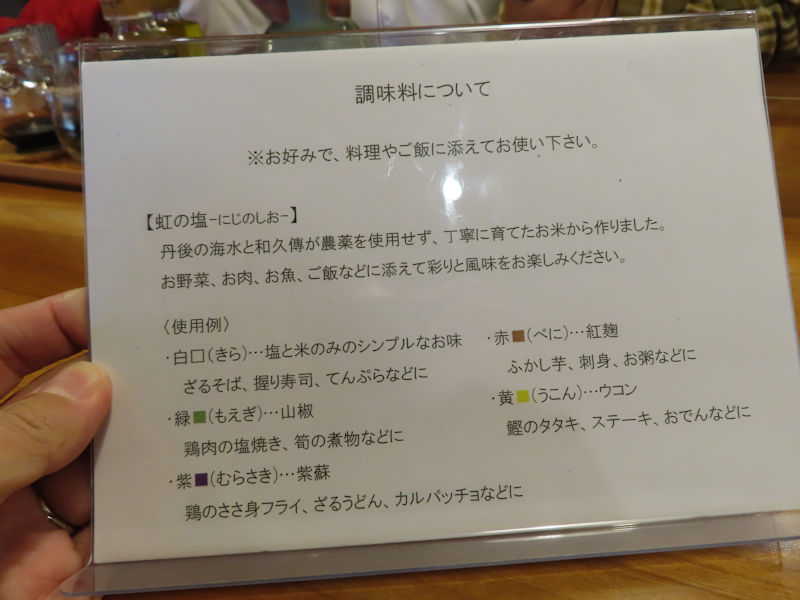 調味料について
※お好みで、料理やご飯に添えてお使い下さい。
【虹の塩-にじのしお-】
丹後の海水と和久傳が農薬を使用せず、丁寧に育てたお米から作りました。
お野菜、お肉、お魚、ご飯などに添えて彩りと風味をお楽しみください。
〈使用例〉
・白□(きら)…塩と米のみのシンプルなお味
ざるそば、握り寿司、てんぷらなどに
・緑■(もえぎ)…山椒
鶏肉の塩焼き、筍の煮物などに
・紫■(むらさき)…紫蘇
鶏のささ身フライ、ざるうどん、カルパッチョなどに
・赤■(べに)…紅麹
ふかし芋、刺身、お粥などに
・黄■(うこん)…ウコン
鰹のタタキ、ステーキ、おでんなどに